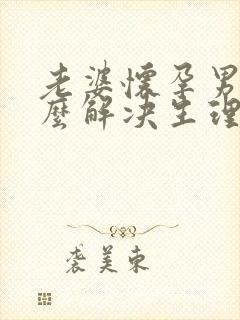 老婆懷孕男
麼解决生理
裘美東